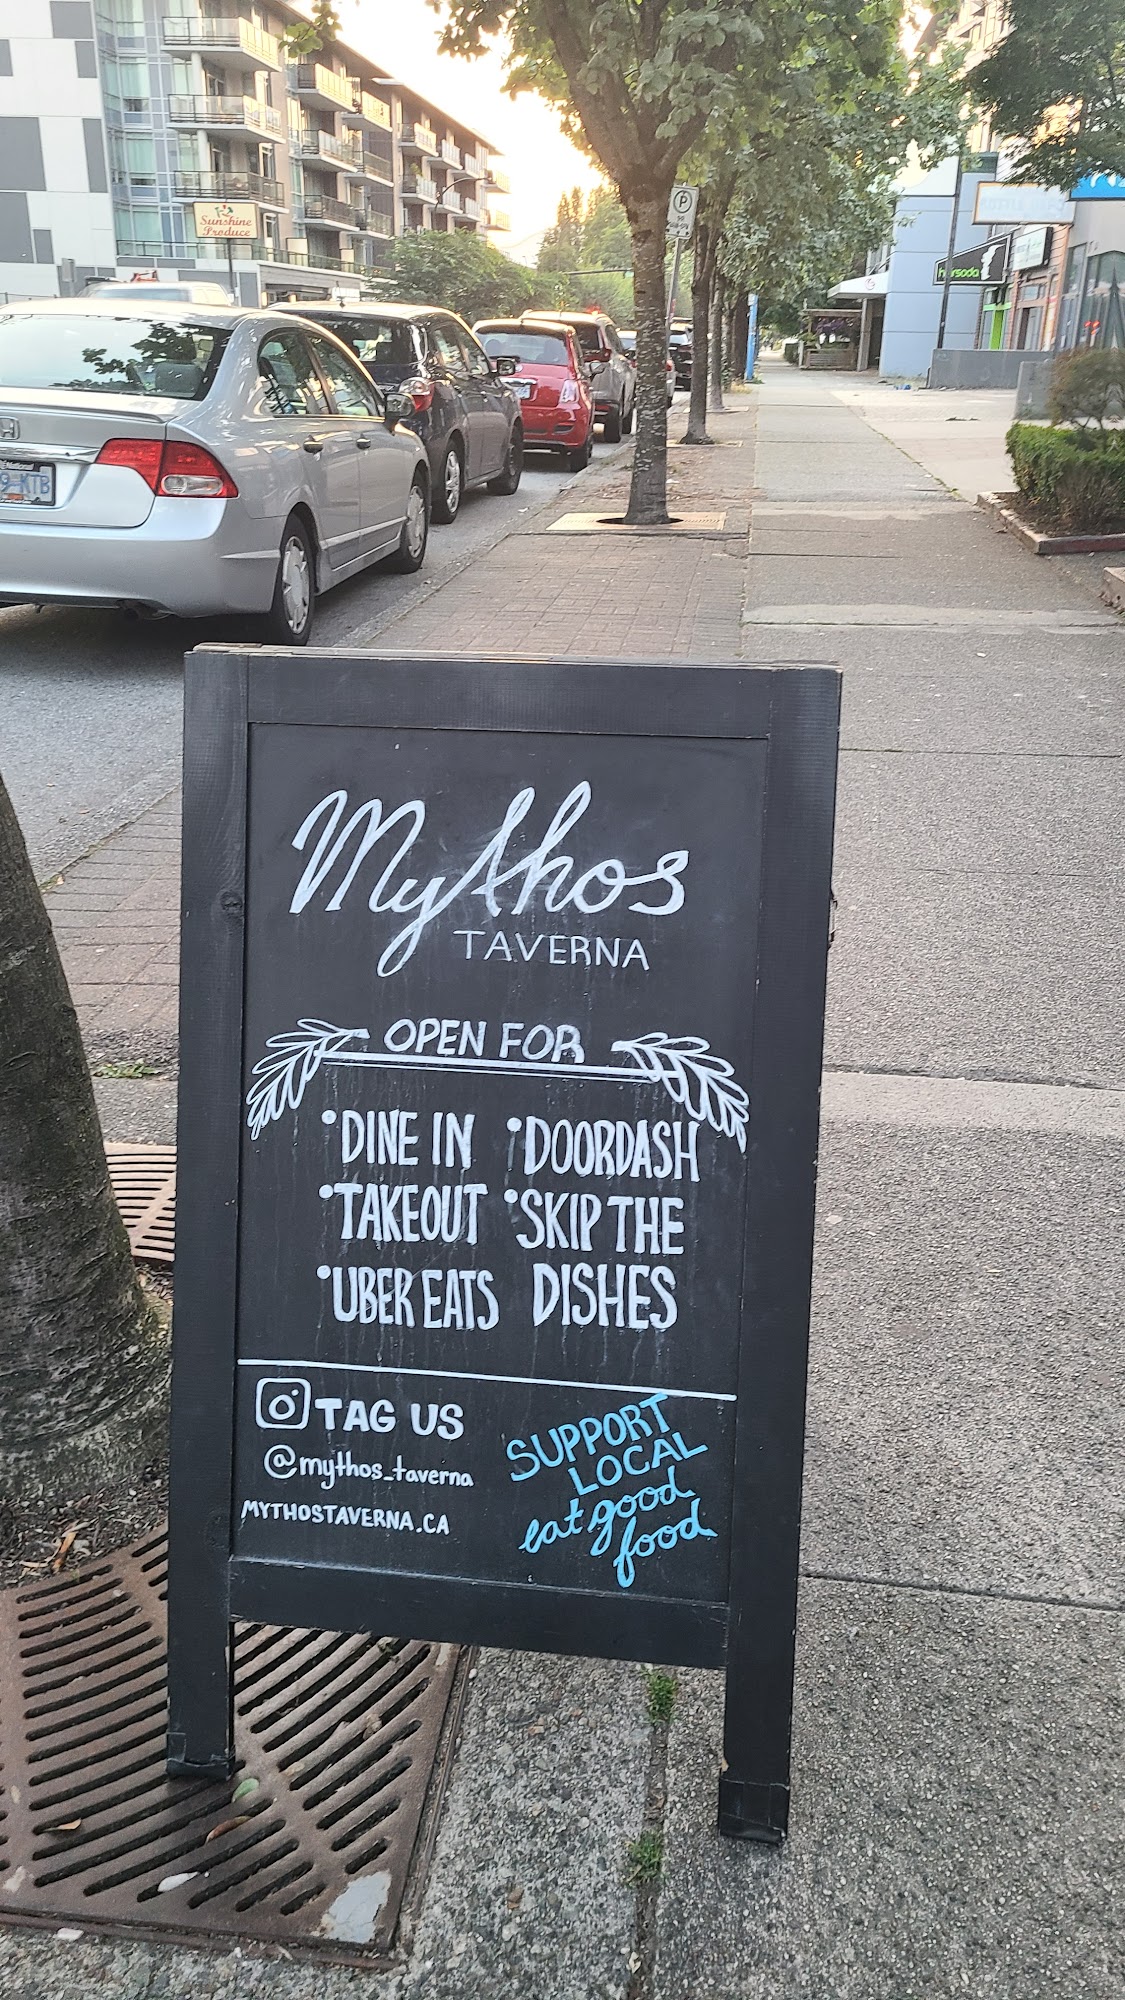 Sunshine
Produce
P
9-KTB
Mythos
TAVERNA
OPEN FOR
•DINE IN
•DOORDASH
•TAKEOUT
•SKIP THE
DISHES
•UBER EATS
TAG US
@mythos_taverna
MYTHOSTAVERNA.CA
SUPPORT
LOCAL
eat good
food